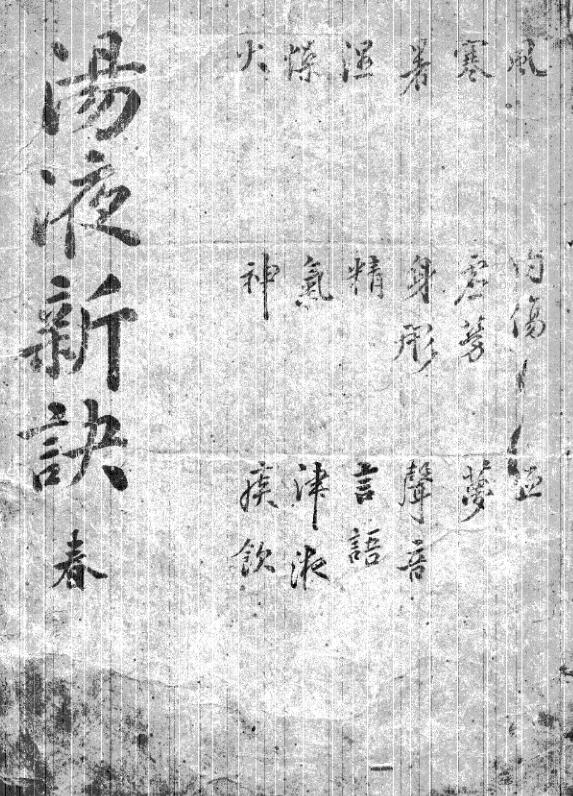 風 內傷 血
寒 虛勞 夢
暑 身形 聲音
湿 精 言語
燥 氣 津液
火 神 痰飲
湯液新訣 春